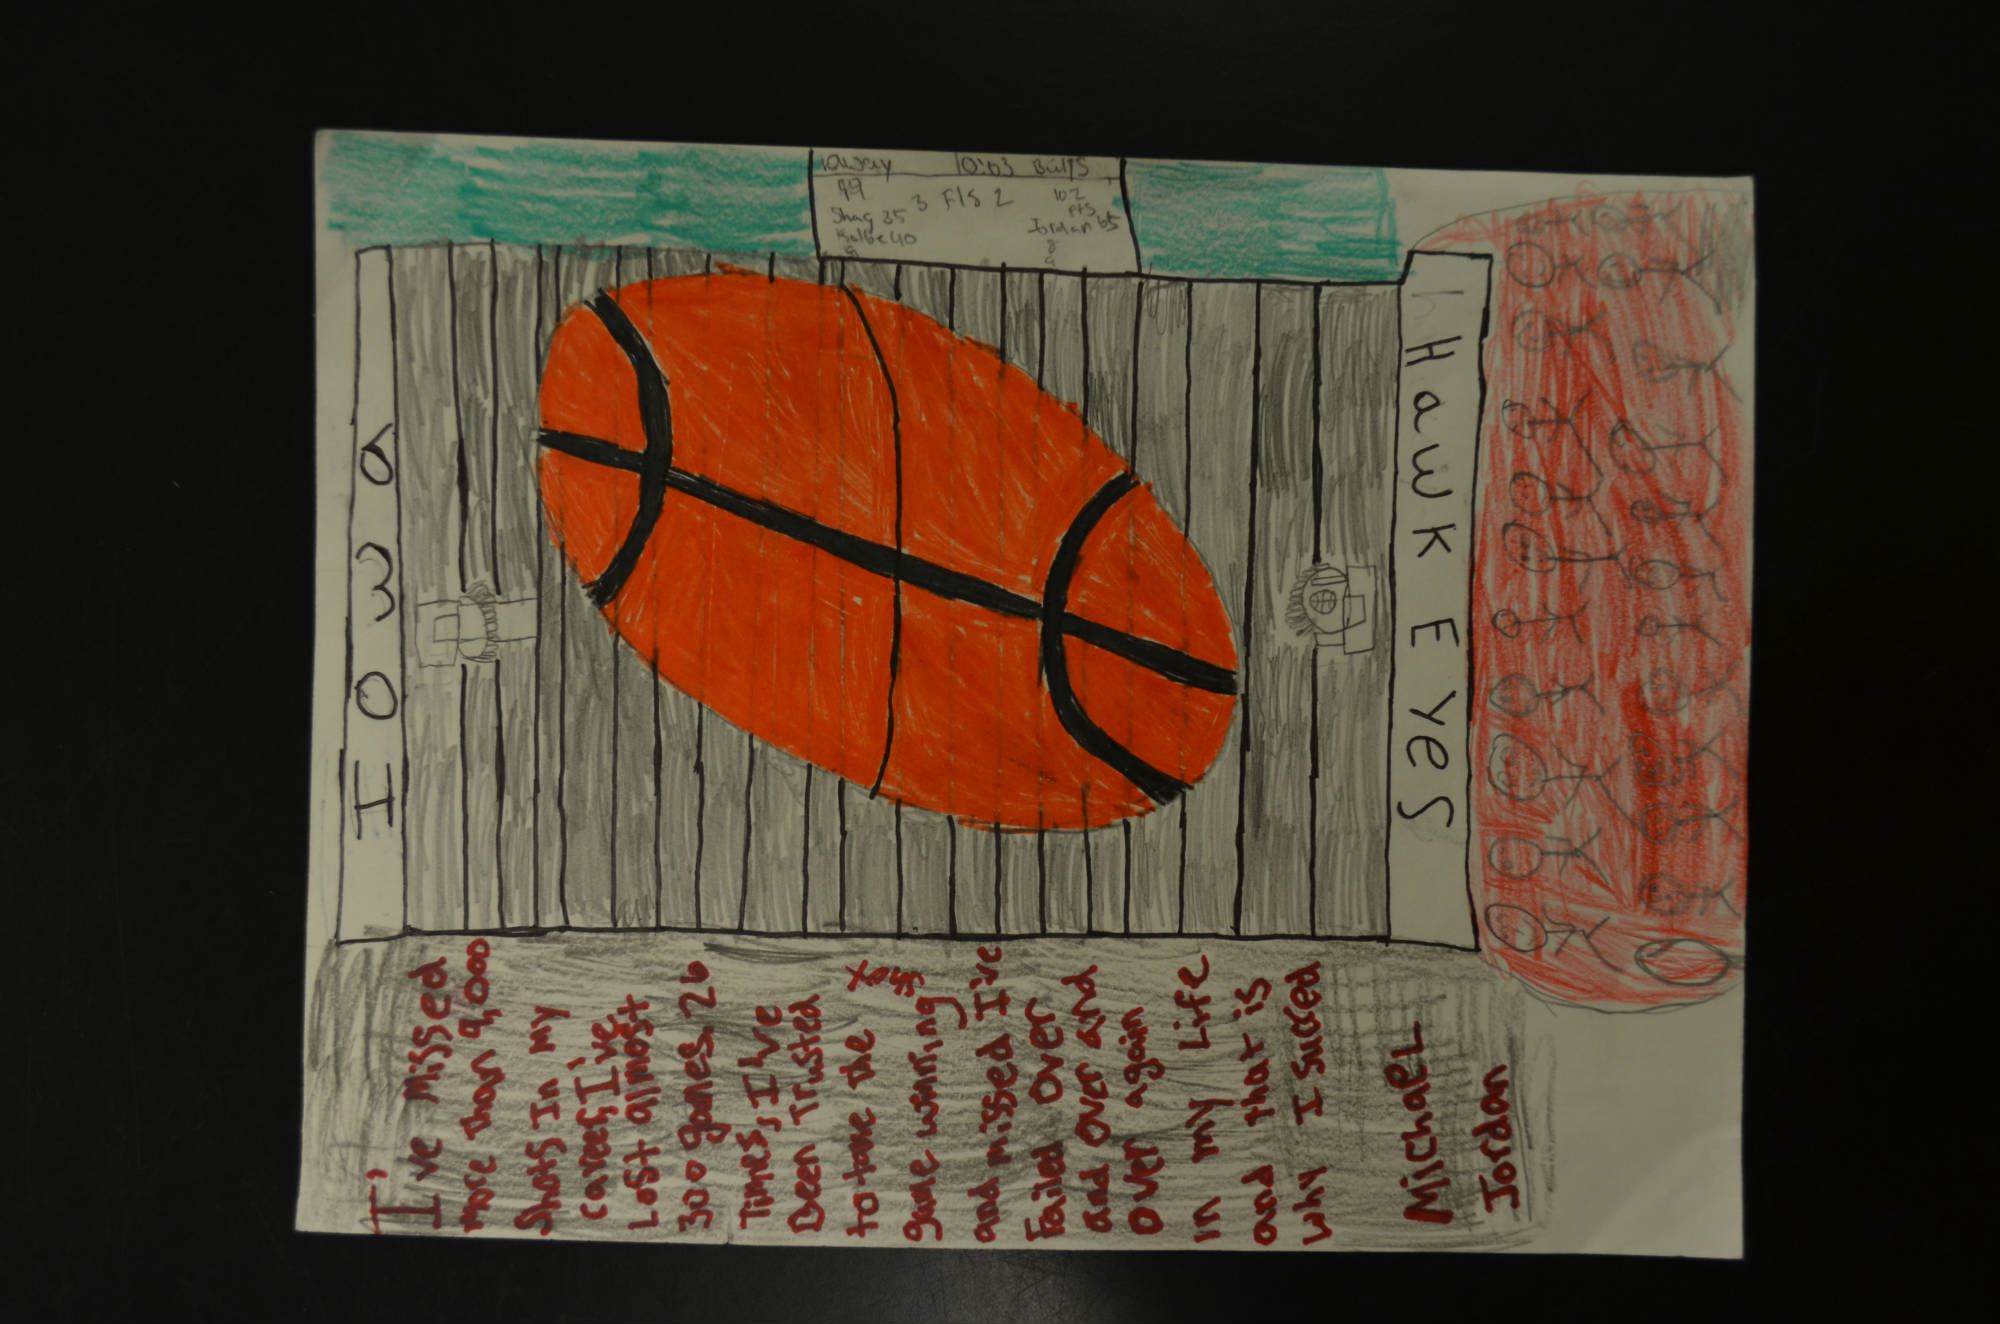 Away 10:03 Bulls
99 3 F/S 2 102
pts
Shaq 35 Jordan 65
Kolbe 40 8
Iowa
Hawk Eyes
I'
I've missed
more than 9,000
Shots In my
career, I've
Lost almost
300 games. 26
Times, I've
Been Trusted
to take the
game winning shot
and missed I've
Failed Over
and Over and
Over again
in my Life
and that is
why I suceed
Michael
Jordan